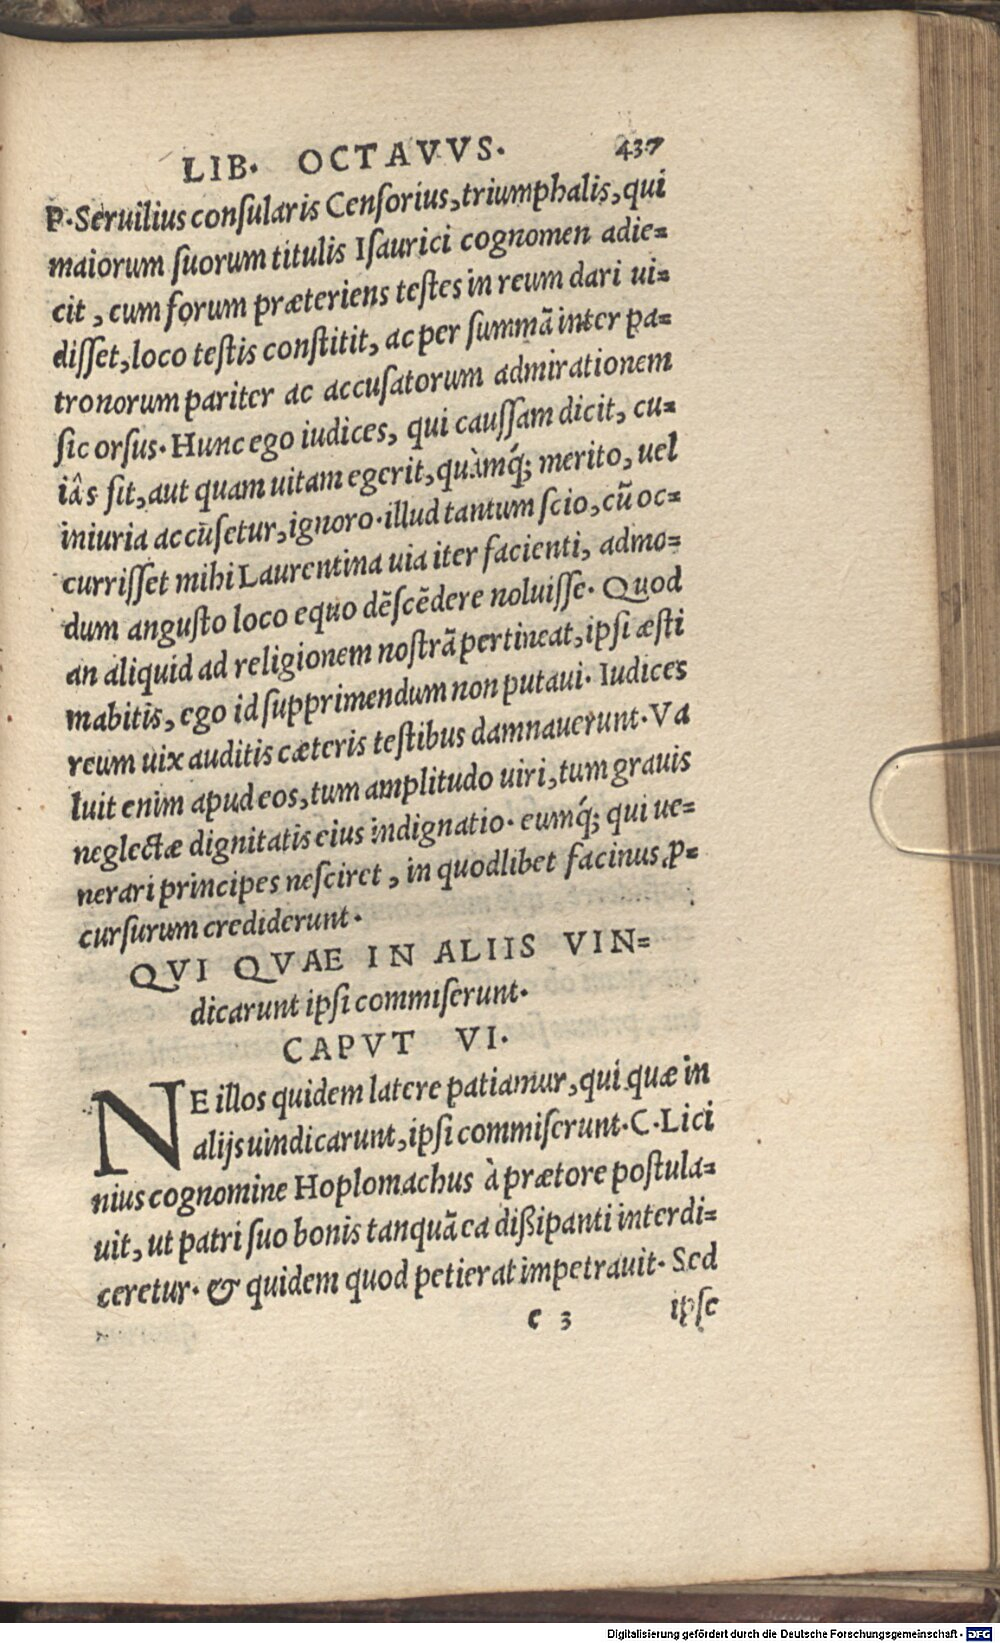 LIB. OCTAVVS. 437
P. Seruilius conſularis Cenſorius, triumphalis, qui
maiorum ſuorum titulis Iſaurici cognomen adie=
cit, cum forum præteriens teſtes in reum dari ui=
diſſet, loco teſtis conſtitit, ac per ſummā inter pa=
tronorum pariter ac accuſatorum admirationem
ſic orſus. Hunc ego iudices, qui cauſſam dicit, cu=
iâs ſit, aut quam uitam egerit, quàmq́; merito, uel
iniuria accūſetur, ignoro. illud tantum ſcio, cū oc=
curriſſet mihi Laurentina uia iter facienti, admo=
dum anguſto loco equo dēſcēdere noluiſſe. Quod
an aliquid ad religionem noſtrā pertineat, ipſi æſti
mabitis, ego id ſupprimendum non putaui. Iudices
reum uix auditis cæteris teſtibus damnauerunt. Va
luit enim apud eos, tum amplitudo uiri, tum grauis
neglectæ dignitatis eius indignatio. eumq́; qui ue=
nerari principes neſciret, in quodlibet facinus ꝓ=
curſurum crediderunt.
QVI QVAE IN ALIIS VIN=
dicarunt ipſi commiſerunt.
CAPVT VI.
NE illos quidem latere patiamur, qui quæ in
alijs uindicarunt, ipſi commiſerunt. C. Lici
nius cognomine Hoplomachus à prætore poſtula=
uit, ut patri ſuo bonis tanquā ea dißipanti interdi=
ceretur. & quidem quod petierat impetrauit. Sed
c 3 ipſe
Digitalisierung gefördert durch die Deutsche Forschungsgemeinschaft - DFG